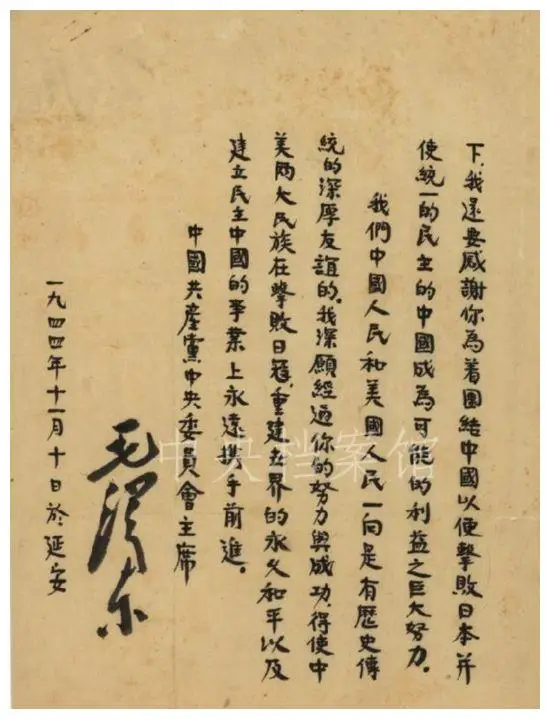 下,我还要感謝你為着團結中國以便擊敗日本并
使統一的民主的中國成為可能的利益之巨大努力。
我們中國人民和美國人民一向是有歷史傳
統的深厚友誼的。我深願經過你的努力與成功,得使中
美兩大民族在擊敗日寇,重建世界的永久和平以及
建立民主中國的事業上永遠携手前進。
中國共產黨中央委員會主席
毛澤东
一九四四年十一月十日於延安
中央档案馆